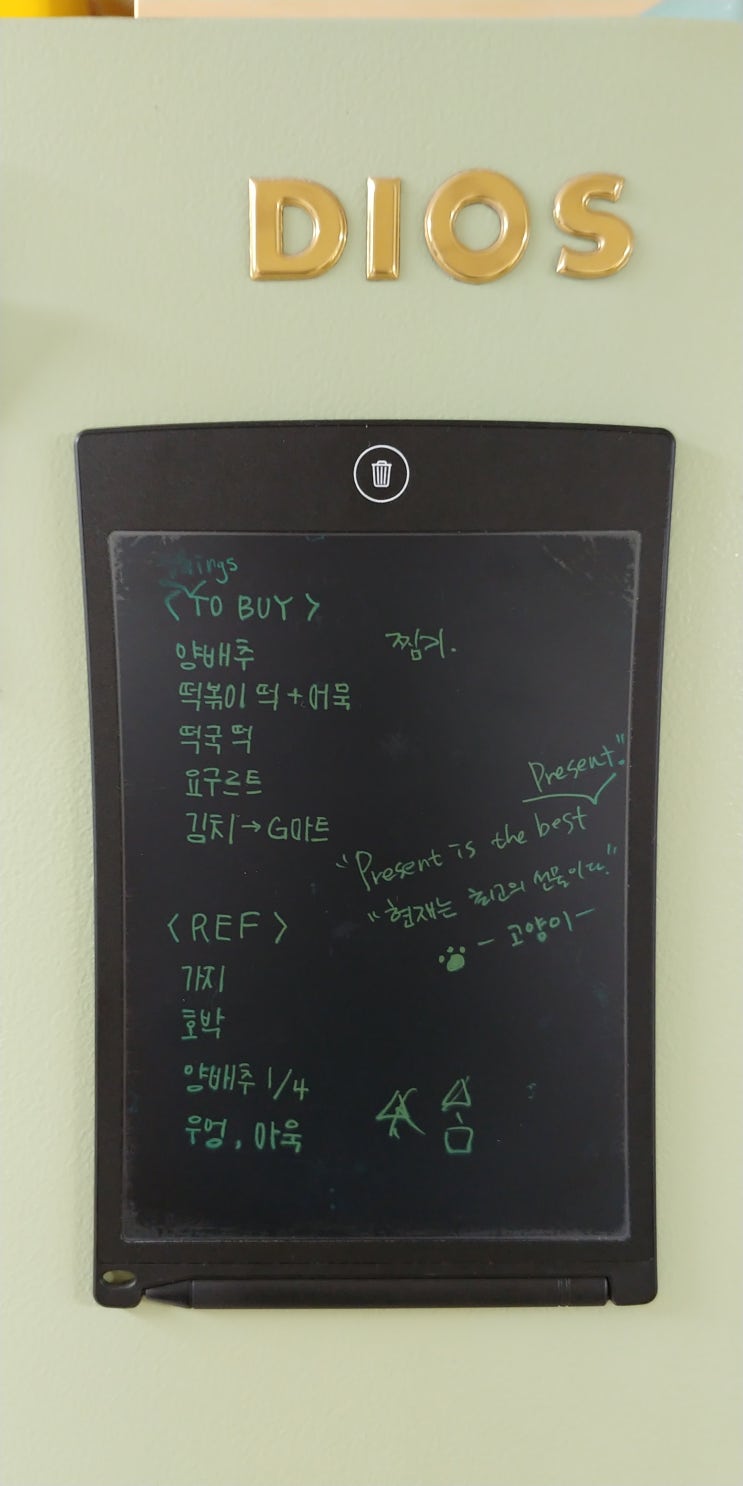 DIOS
Things
<TO BUY>
양배추
찜기.
떡볶이 떡 + 어묵
떡국 떡
요구르트
김치→G마트
"Present is the best Present."
"현재는 최고의 선물이다."
- 고양이 -
<REF>
가지
호박
양배추 1/4
우엉, 아욱